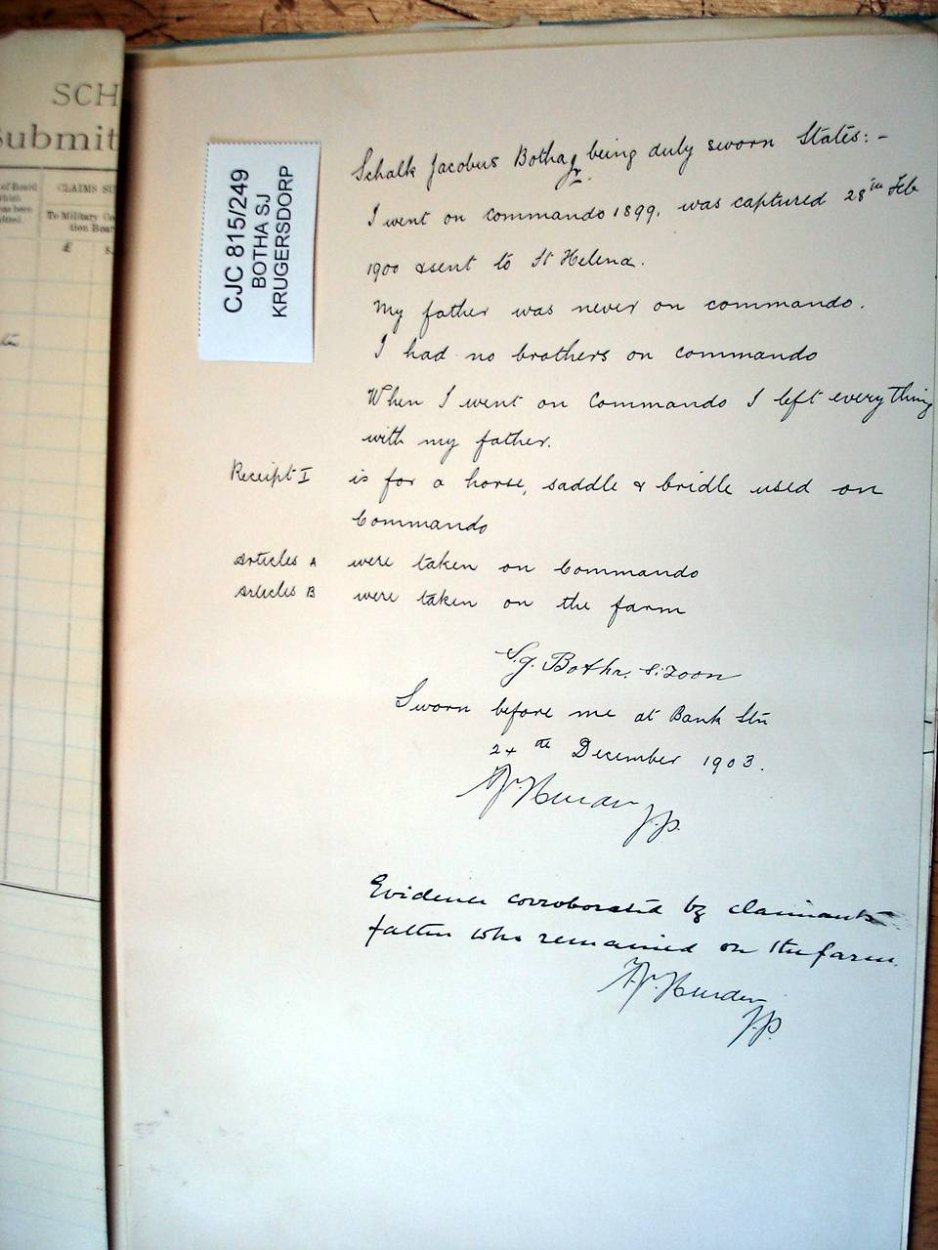 SCH
Submit
of Board
CLAIMS SU
To Military Co
tion Boar
£ s.
CJC 815/249
BOTHA SJ
KRUGERSDORP
Schalk Jacobus Botha Jr. being duly sworn States:-
I went on commando 1899. was captured 28th Feb
1900 & sent to St Helena.
My father was never on commando.
I had no brothers on commando
When I went on Commando I left everything
with my father.
Receipt I is for a horse, saddle & bridle used on
Commando
Articles A were taken on Commando
Articles B were taken on the farm
S.J. Botha. S. Zoon
Sworn before me at Bank Stn
24th December 1903.
J.P.
Evidence corroborated by claimants
father who remained on the farm.
J.P.